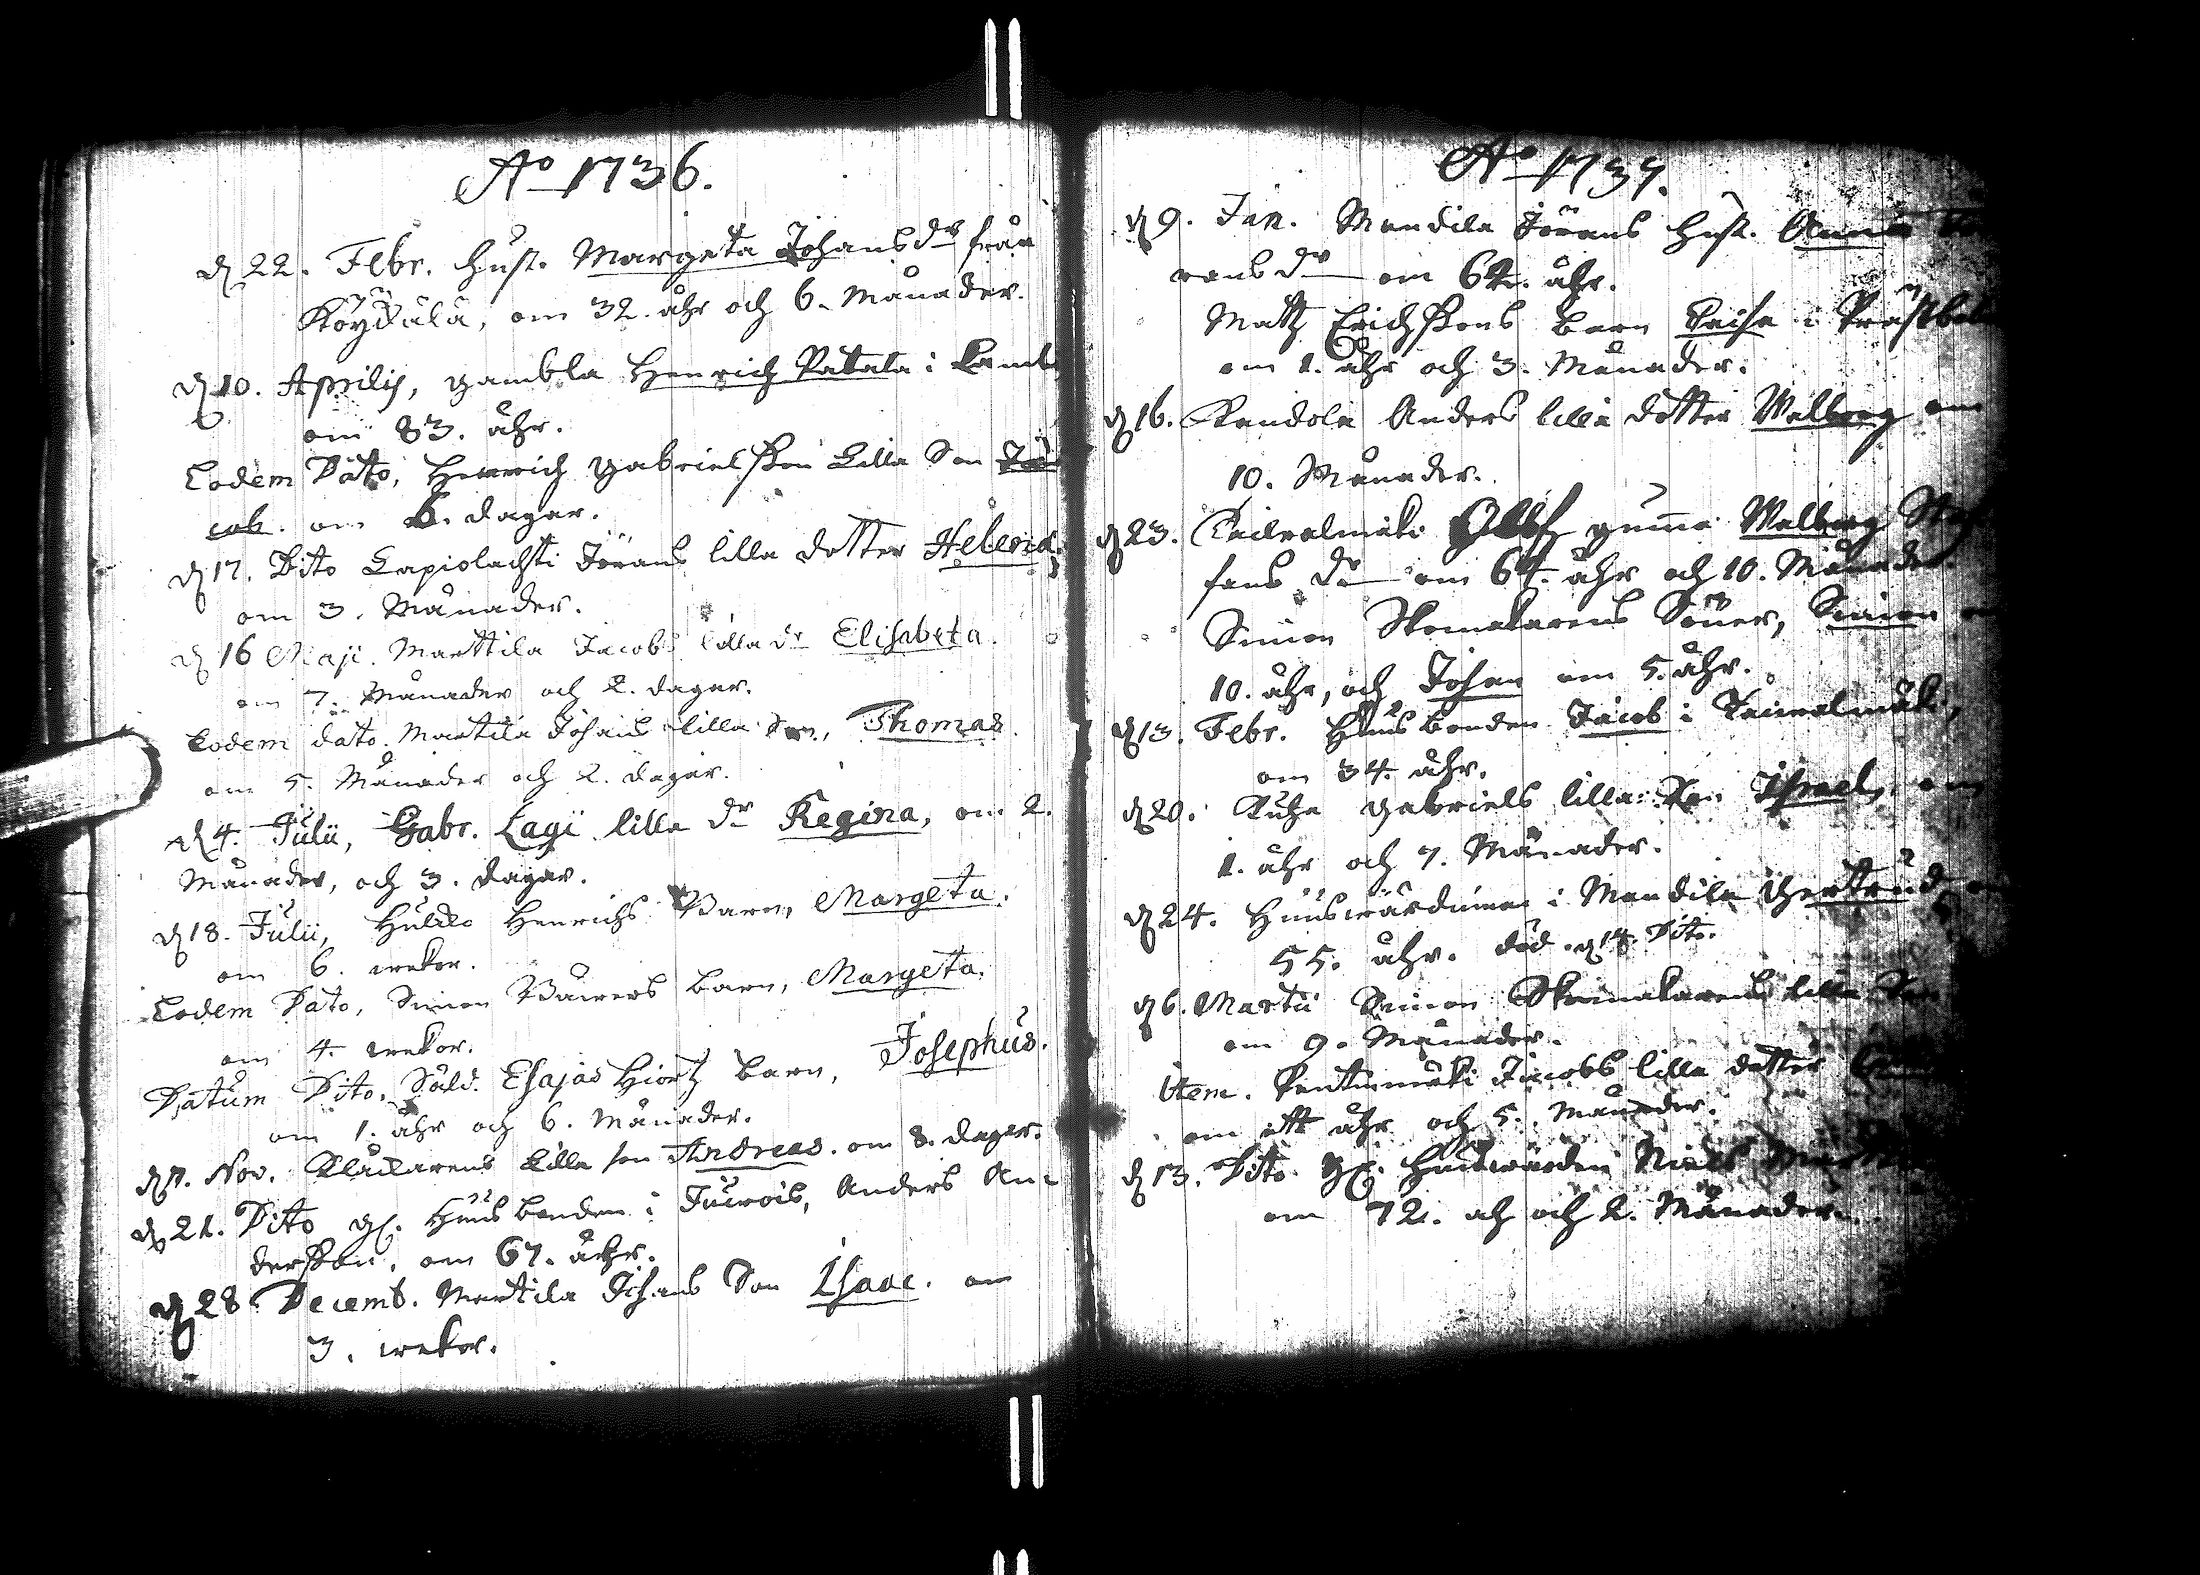 Ao 1736.
d 22. Febr. hust. Margeta Johansdr från
Köydälä, om 32. åhr och 6. Månader.
d 10. Aprilis, gambla Henrich Patala i
om 83. åhr.
Eodem Dato, Henrich Gabrielsson Lilla Son Ja
cob. om 6. dagar.
d 17. Dito Lapiolachti Jörans lilla dotter Helena,
om 3. Månader.
d 16 Maji. Marttila Jacobs lilla dr Elisabeta.
om 7. Månader och 2. dagar.
Eodem dato. Martila Johans lilla Son, Thomas.
om 5. Månader och 2. dagar.
d 4. Julii, Gabr. Lagi lilla dr Regina, om 2.
Månader, och 3. dagar.
d 18. Julii, Henrichs Barn, Margeta.
om 6. wekor.
Eodem Dato, Simon barn, Margeta.
om 4. wekor.
Datum Dito, Sold. Esajas Hiort barn, Josephus.
om 1. åhr och 6. Månader.
d 7. Nov. Klåckarens Lilla son Andreas. om 8. dagar.
d 21. Dito gl. Husbonden i Anders An-
dersson, om 67. åhr.
d 28 Decemb. Martila Johans Son Isaac. om
3. wekor.
Ao 1737.
d 9. Jan. Mendila Jörans hust. Anna
ransdr om 64. åhr.
Matz Erichssons barn Caisa i
om 1. åhr och 3. Månader.
d 16. Kandola Anders lilla dotter Walborg om
10. Månader.
d 23. gumma Walborg
fans dr om 64. åhr och 10. Månader.
Simon Skomakarens Söner, Simon om
10. åhr, och Johan om 5. åhr.
d 13. Febr. Husbonden Jacob i
om 34. åhr.
d 20. Kuha Gabriels lilla Son Israel, om
1. åhr och 7. Månader.
d 24. Huuswärdinna i Mendila Gertrud om
55. åhr. död d 14. Dito.
d 6. Martii Simon Skomakarens lilla Son
om 9. Månader.
Item. Jacobs lilla dotter
om ett åhr och 5. Månader.
d 13. Dito. gl. Huuswärden Niels
om 72. åh och 2. Månader.